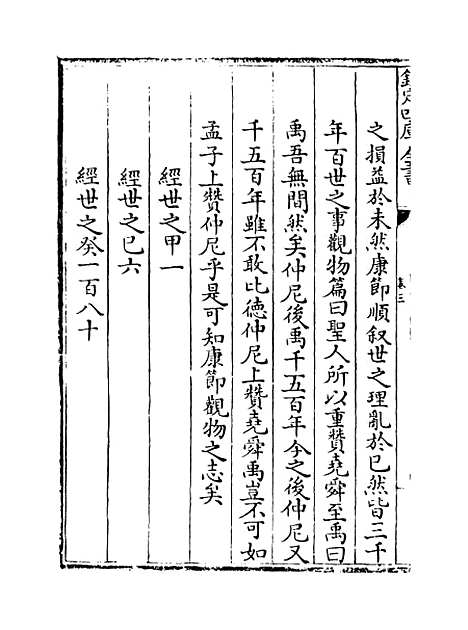 欽定四庫全書
卷三
之損益於未然康節順叙世之理亂於已然皆三千
年百世之事觀物篇曰聖人所以重贊堯舜至禹曰
禹吾無間然矣仲尼後禹千五百年今之後仲尼又
千五百年雖不敢比德仲尼上贊堯舜禹豈不可如
孟子上贊仲尼乎是可知康節觀物之志矣
經世之甲一
經世之巳六
經世之癸一百八十